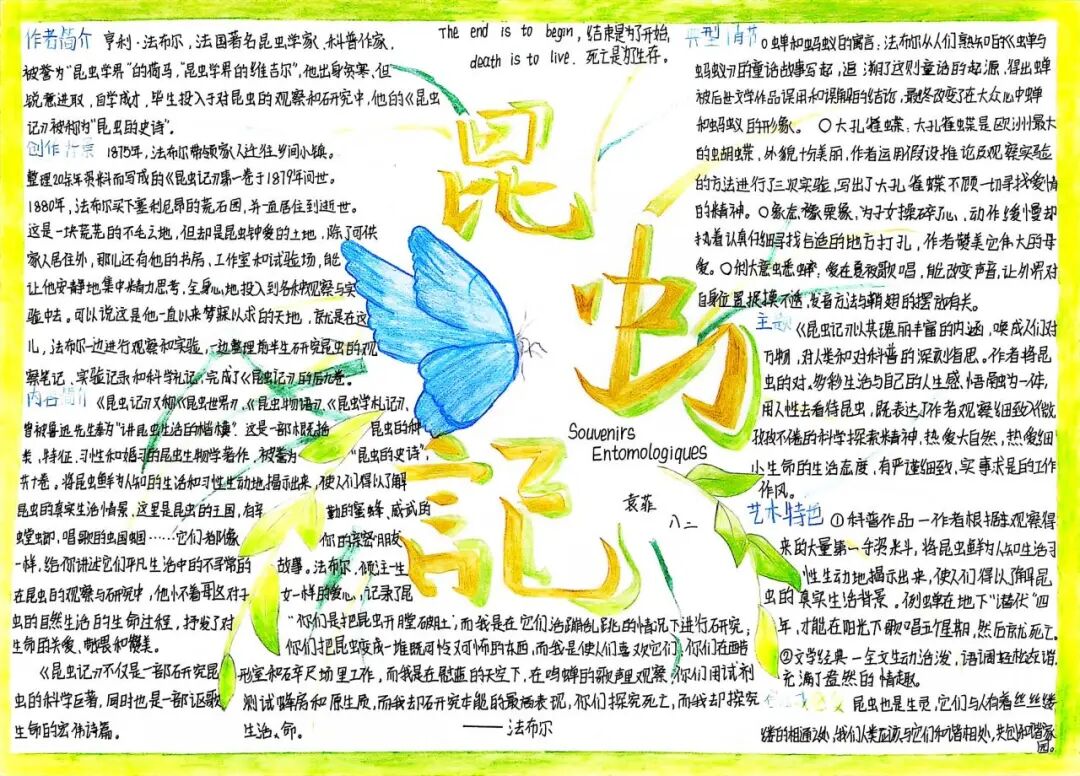 作者简介 亨利·法布尔，法国著名昆虫学家、科普作家，
被誉为“昆虫学界”的荷马，“昆虫学界的维吉尔”，他出身贫寒，但
锐意进取，自学成才，毕生投入于对昆虫的观察和研究中，他的《昆虫
记》被称为“昆虫的史诗”。
创作背景 1875年，法布尔带领家人迁往乡间小镇。
整理20余年资料而写成的《昆虫记》第一卷于1879年问世。
1880年，法布尔买下塞利尼昂的荒石园，并一直居住到逝世。
这是一块荒芜的不毛之地，但却是昆虫钟爱的土地，除了可供
家人居住外，那儿还有他的书房、工作室和试验场，能
让他安静地集中精力思考，全身心地投入到各种观察与实
验中去。可以说这是他一直以来梦寐以求的天地，就是在这
儿，法布尔一边进行观察和实验，一边整理前半生研究昆虫的观
察笔记、实验记录和科学札记，完成了《昆虫记》的后九卷。
内容简介 《昆虫记》又称《昆虫世界》、《昆虫物语》、《昆虫学札记》，
曾被鲁迅先生奉为“讲昆虫生活的楷模”。这是一部概括 昆虫的种
类、特征、习性和婚习的昆虫生物学著作，被誉为 “昆虫的史诗”，
共十卷，将昆虫鲜为人知的生活和习性生动地揭示出来，使人们得以了解
昆虫的真实生活情景，这里是昆虫的王国，有辛 勤的蜜蜂、威武的
螳螂，唱歌的虫蝈蝈……它们都像 你的亲密朋友
一样，给你讲述它们平凡生活中的不寻常的 故事。法布尔倾注一生
在昆虫的观察与研究中，他怀着哥这对子 女一样的爱心，记录了昆
虫的自然生活的生命过程，抒发了对
生命的关爱、敬畏和赞美。
《昆虫记》不仅是一部研究昆
虫的科学巨著，同时也是一部讴歌
生命的宏伟诗篇。
The end is to begin，结束是为了开始，
death is to live. 死亡是为了生存。
昆
虫
記
Souvenirs
Entomologiques
袁菲
八二
“你们是把昆虫开膛破肚；而我是在它们活蹦乱跳的情况下进行研究；
你们把昆虫变成一堆既可怜又可怖的东西，而我是使人们喜欢它们；你们在酷
刑室和碎尸场里工作，而我是在蔚蓝的天空下，在鸣蝉的歌声里观察；你们用试剂
测试蜂房和原生质，而我却研究本能的最高表现，你们探究死亡，而我却探究
生活、命。
——法布尔
典型情节 ○蝉和蚂蚁的寓言：法布尔从人们熟知的《虫蝉与
蚂蚁》的童话故事写起，追溯了这则童话的起源，得出蝉
被后世文学作品误用和误解的结论，最终改变了在大众心中蝉
和蚂蚁的形象。 ○大孔雀蝶：大孔雀蝶是欧洲最大
的虫蝴蝶，外貌十分美丽，作者运用假设推论及观察实验
的方法进行了三次实验，写出了大孔雀蝶不顾一切寻找爱情
的精神。○象态橡栗象，为子女操碎了心，动作缓慢却
执着认真仔细寻找合适的地方打孔，作者赞美它伟大的母
爱。○例大意虫蟋蟀：爱在夏夜歌唱，能改变声音，让外界对
自身位置捉摸不透，发音方法与鞘翅的摆放有关。
主题 《昆虫记》以其瑰丽丰富的内涵，唤成人们对
万物、对人类和对科普的深刻省思。作者将昆
虫的对。多彩生活与自己的人生感悟融为一体，
用人性去看待昆虫，既表达了作者观察细致入微
孜孜不倦的科学探索精神，热爱大自然，热爱细
小生命的生活态度，有严谨细致，实事求是的工作
作风。
艺术特色 ①科普作品—作者根据生观察得
来的大量第一手资料，将昆虫鲜为人知生活习
性生动地揭示出来，使人们得以了解昆
虫的真实生活背景。例蝉在地下“潜伏”四
年，才能在阳光下歌唱五个星期，然后就死亡。
②文学经典—全文生动活泼，语调轻松诙谐，
充满了盎然的情趣。
昆虫也是生灵，它们与人有着丝丝缕
缕的相通之处，我们人类应该与它们和谐相处，共创和谐家
园。